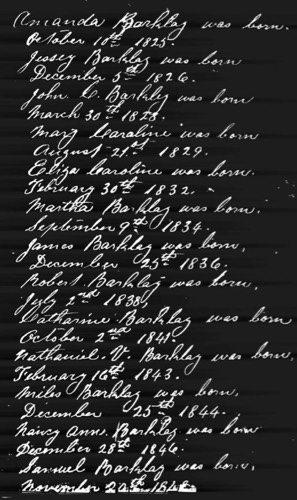 Amanda Barkley was born.
October 10th 1825.
Jessey Barkley was born
December 5th 1826.
John C. Barkley was born
March 30th 1828.
Mary Caroline was born
August 21st 1829.
Eliza Caroline was born.
February 30th 1832.
Martha Barkley was born.
September 9th 1834.
James Barkley was born,
December 25th 1836.
Robert Barkley was born,
July 2nd 1838,
Catharine Barkley was born
October 2nd 1841.
Nathaniel V. Barkley was born,
February 16th 1843.
Miles Barkley was born,
December 25th 1844.
Nancy Ann. Barkley was born
December 28th 1846.
Samuel Barkley was born,
November 20th